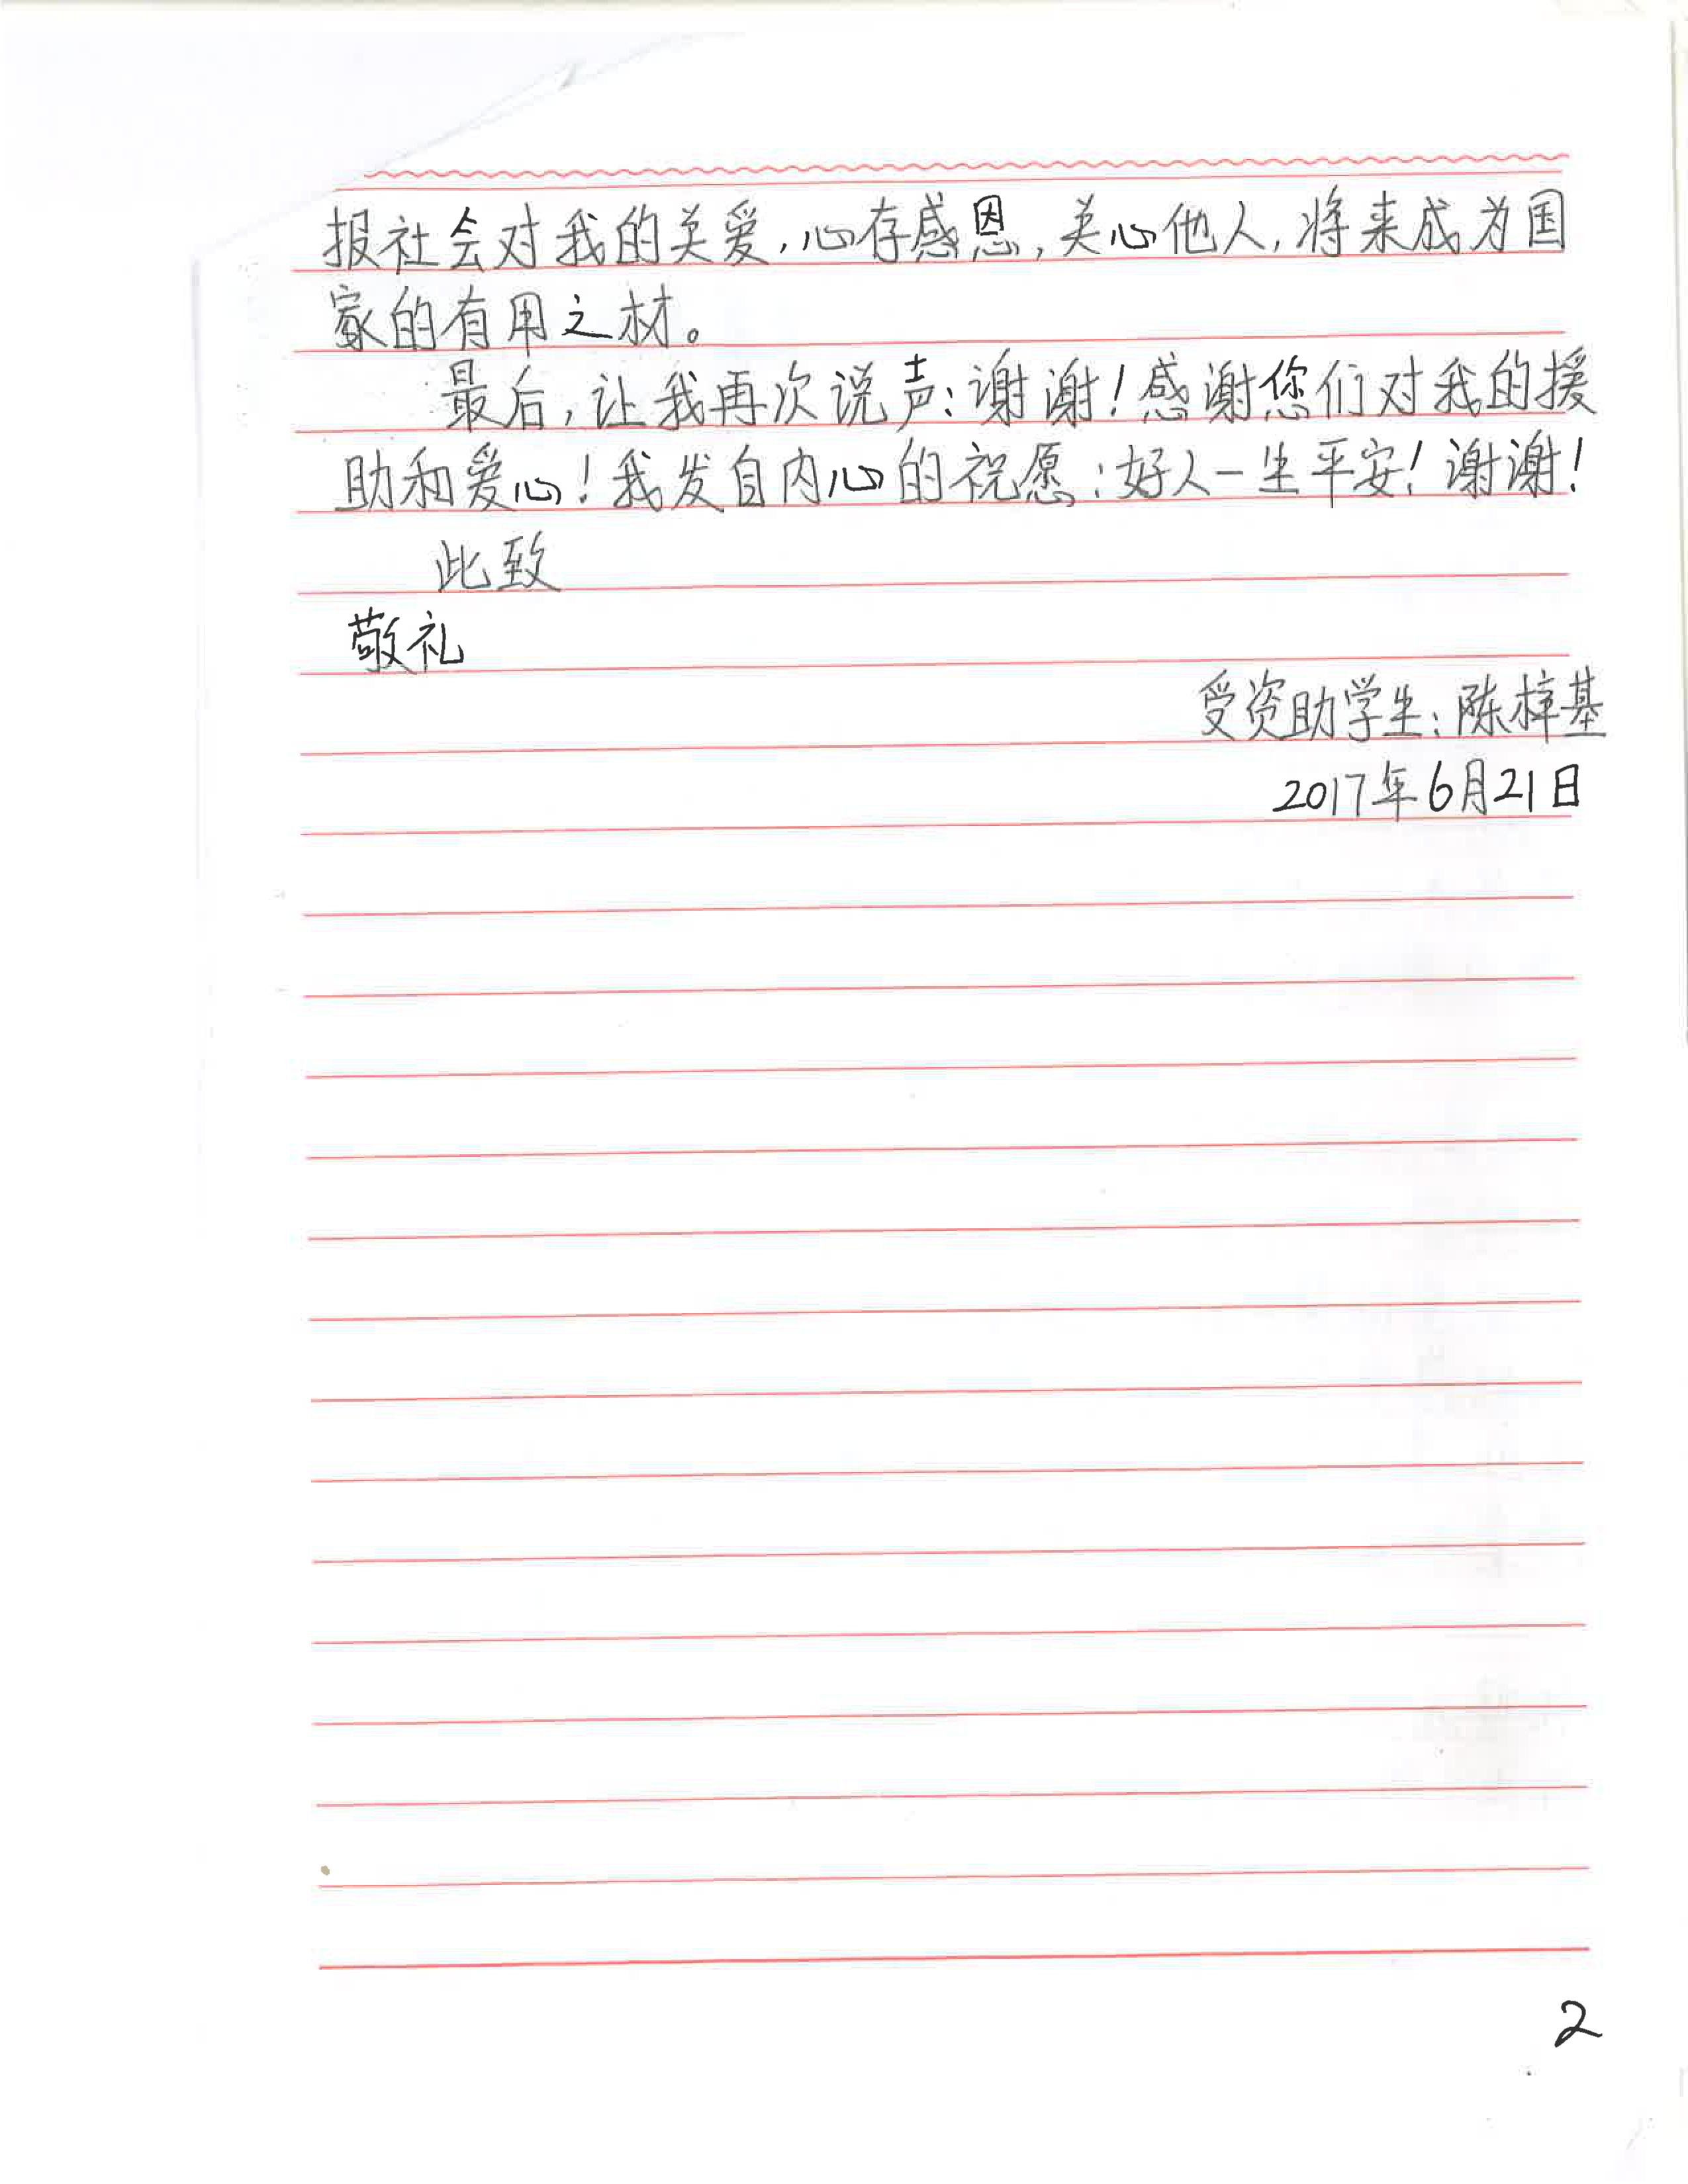 报社会对我的关爱，心存感恩，关心他人，将来成为国
家的有用之材。
最后，让我再次说声：谢谢！感谢您们对我的援
助和爱心！我发自内心的祝愿：好人一生平安！谢谢！
此致
敬礼
受资助学生：陈梓基
2017年6月21日
2